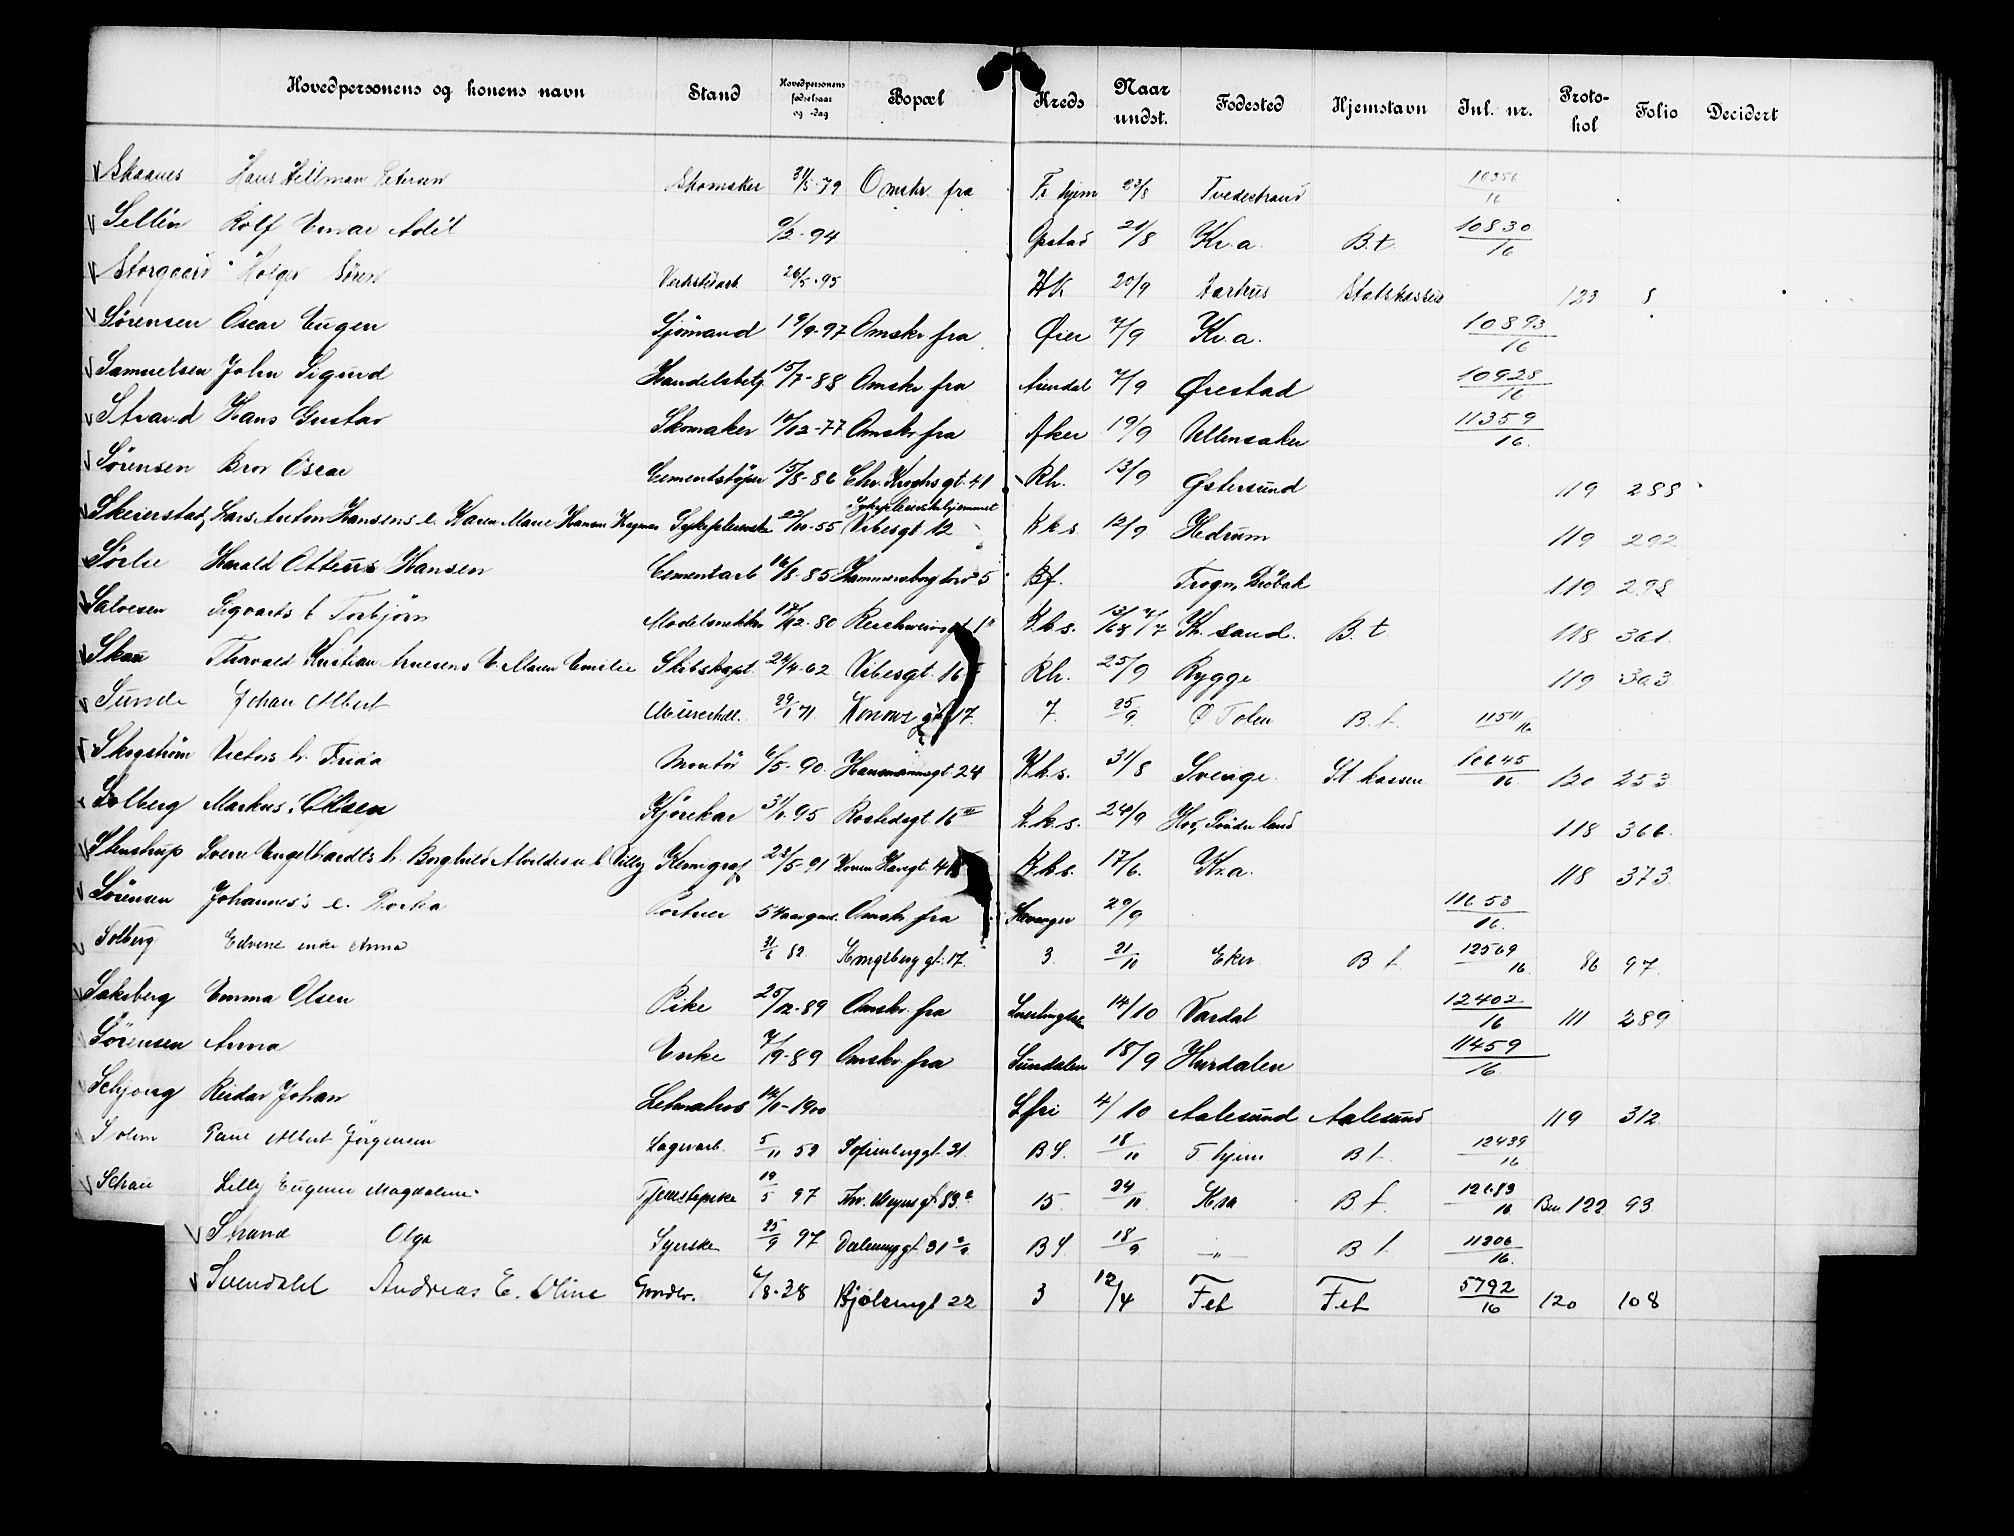 Hovedpersonens og konens navn Stand Hovedpersonens fødselsaar og -dag Bopæl Kreds Naar undst. Fødested Hjemstavn Jnl. nr. Proto-kol Folio Decidert
Skaanes Hans Hillman Petersen Skomaker 31/5-79 Omskr. fra Tr hjem 23/8 Tvedestrand 10356/16
Sellén Rolf Einar Adil 9/2-94 Opstad 21/8 Kr.a. B.t. 10830/16
Storgaard Holger Sören Verkstedarb 26/5-95 HK 20/9 Aarhus Statskassen 123 8
Sørensen Oscar Eugen Sjömand 19/9-97 Omskr fra Øier 7/9 Kr.a. 10893/16
Samuelsen John Sigurd Handelsbetj. 15/7-88 Omskr fra Arendal 7/9 Ørestad 10928/16
Strand Hans Gustav Skomaker 10/12-77 Omskr fra Aker 19/9 Ullensaker 11359/16.
Sørensen Bror Oscar Cementstøper 15/8-86 Chr. Kroghsgt. 41 Rh. 13/9 Østersund 119 288
Skeierstad, Lars Anton Hansens e. Karen Marie Hansen Sykepleierske 22/10-55 Sykepleierskehjemmet Vibesgt. 12 K.k.s. 12/9 Hedrum 119 292
Sørlie Harald Otteus Hansen Cementarb 16/8-85 Hammersborg torv 5 Bf. Frogn, Dröbak 119 298
Salvesen Sigvards b Torbjörn Modelsnekker 17/12-80 K.k.s. 13/6 4/7 Kr. sand. B.t. 118 361.
Skau Thorvald Kristian Arnesens E. Maren Emilie Skibskapt. 24/4-62 Vibesgt. 16 Rh. 25/9 Rygge 119 303
Sunde Johan Albert Murerhdl. 29/1 71. Konows gt 17. 7. 25/9 Ø Toten B.t. 11511/16
Skogström Victors h. Frida Montör 6/5-90. Hausmannsgt 24 K.k.s. 31/8 Sverige. St. kassen 10645/16. 120 253
Solberg Markus Ottsen Kjörekar 31/1.95 Rostedsgt. 16 III K.k.s. 24/9 Hov, Söndre land 118 366.
Stenstrup Sverre Engelhardts h. Borghild Alvilde u. b Villy Kemigraf 23/5-91 K.k.s. 17/6. Kr.a. 118 373.
Sørensen Johannes's e. Portner Omskr fra Stavanger 29/9 11653/16.
Solberg Edvine enke Anna 31/6 82. Kongsberg gt. 17. 3. 21/10 Eker B t. 12569/16. 86 97.
Saksberg Emma Olsen Pike 25/12-89 Omskr. fra 14/10 Vardal 12402/16 111 289
Sørensen Anna Enke 7/9-89 Omskr fra Sundalen 18/9 Hurdalen 11459/16.
Schjong Reidar Johan Letmatros 14/10-1900 S. fri 4/10 Aalesund Aalesund 119 312.
Solem Paul Albert Jörgensen Lagerarb. 5/11 59 Sofienberggt. 31. B S. 18/10 T hjem B t. 12439/16.
Schau Lilly Eugenie Magdalene Tjenestepike 19/5 97 Thv. Meyers gt. 83. 15. 24/10 Kra B t. 12683/16. 122 93
Strand Olga Syerske 25/9 97 Dælenenggt 31 B S. 18/9 " B t. 11306/16.
Svendahl Andreas E. Oline Grovarb. 6/8-38 Bjölsengt 22 3 12/4 Fet Fet 5792/16 120 108